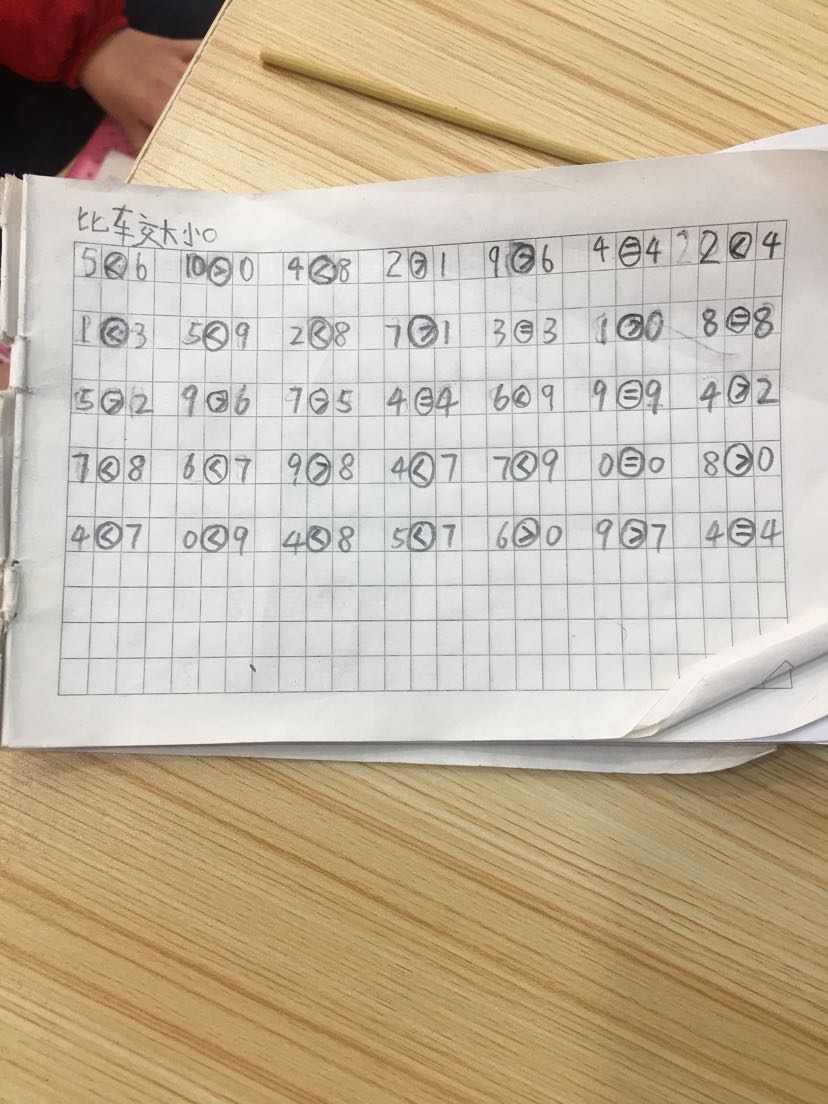 比较大小。
5<6 10>0 4<8 2>1 9>6 4=4 2 2<4
1<3 5<9 2<8 7>1 3=3 1>0 8=8
5>2 9>6 7>5 4=4 6<9 9=9 4>2
7<8 6<7 9>8 4<7 7<9 0=0 8>0
4<7 0<9 4<8 5<7 6>0 9>7 4=4